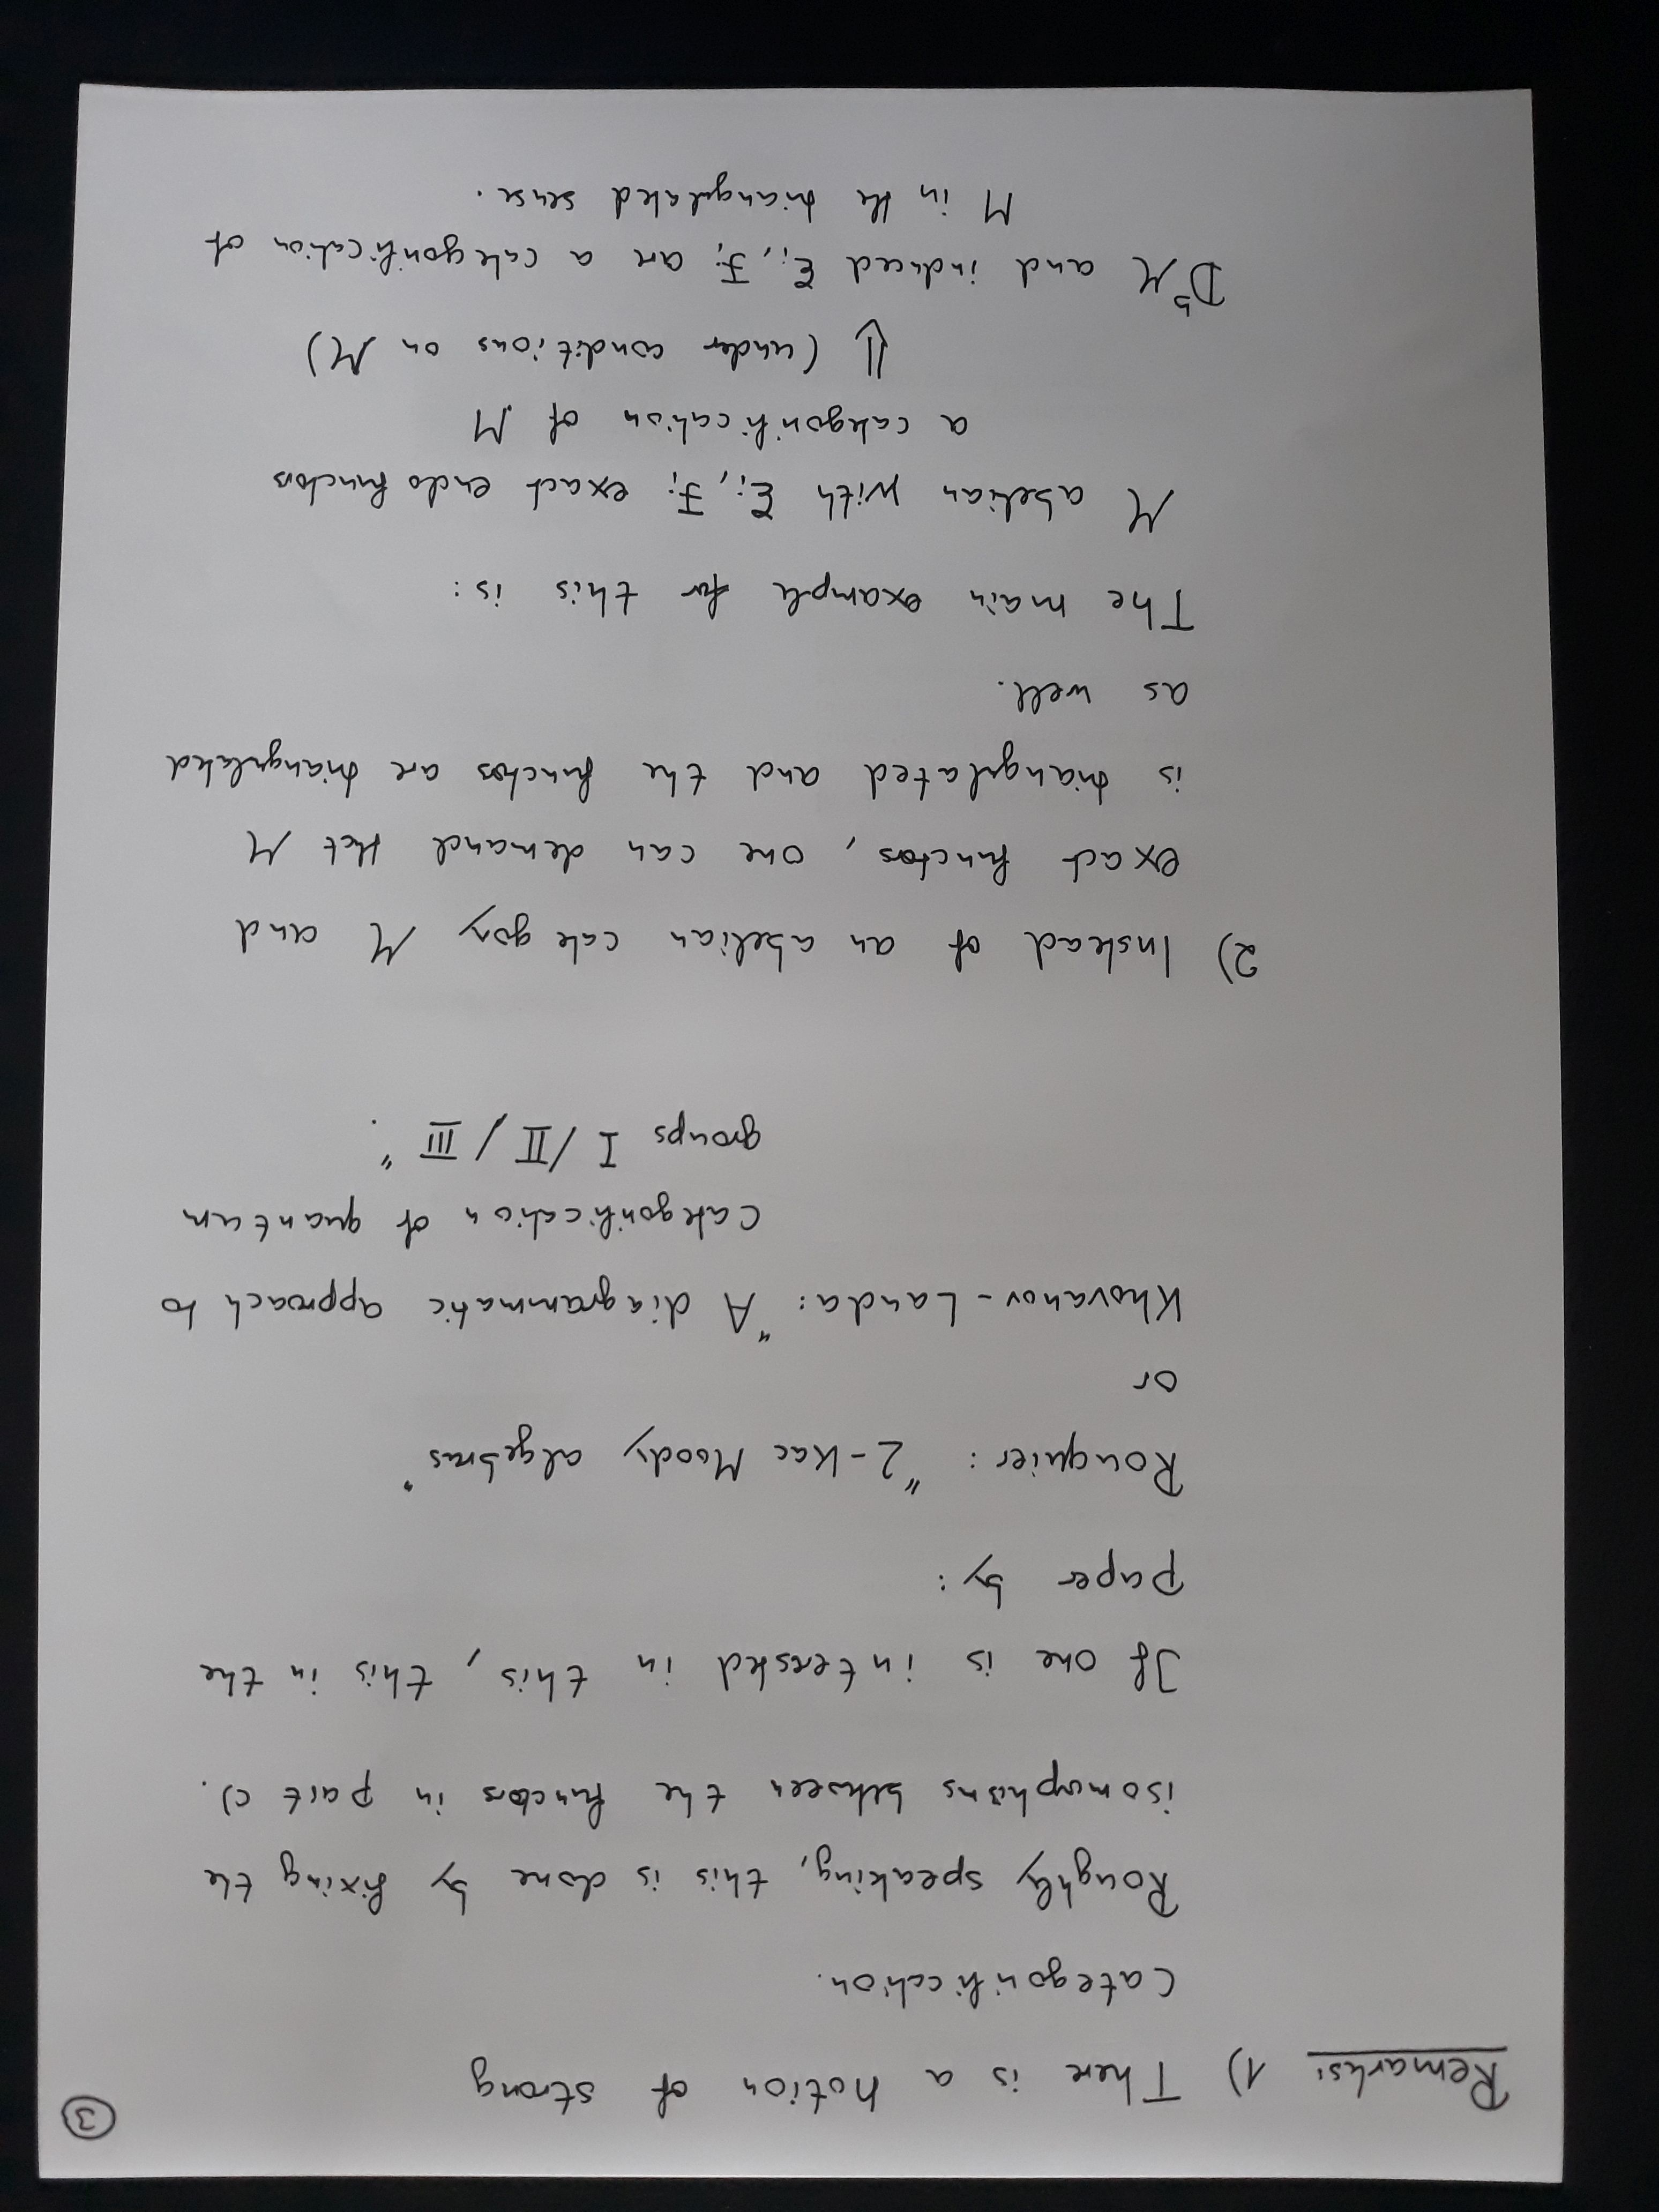 ③
Remarks: 1) There is a notion of strong
categorification.
Roughly speaking, this is done by fixing the
isomorphisms between the functors in part c).
If one is interested in this, this in the
paper by:
Rouquier: "2-Kac Moody algebras"
or
Khovanov-Lauda: "A diagrammatic approach to
categorification of quantum
groups I/II/III".
2) Instead of an abelian category ℳ and
exact functors, one can demand that ℳ
is triangulated and the functors are triangulated
as well.
The main example for this is:
ℳ abelian with ℰᵢ, ℱᵢ exact endofunctors
a categorification of M
⇓ (under conditions on ℳ)
Dᵇℳ and induced ℰᵢ, ℱᵢ are a categorification of
M in the triangulated sense.